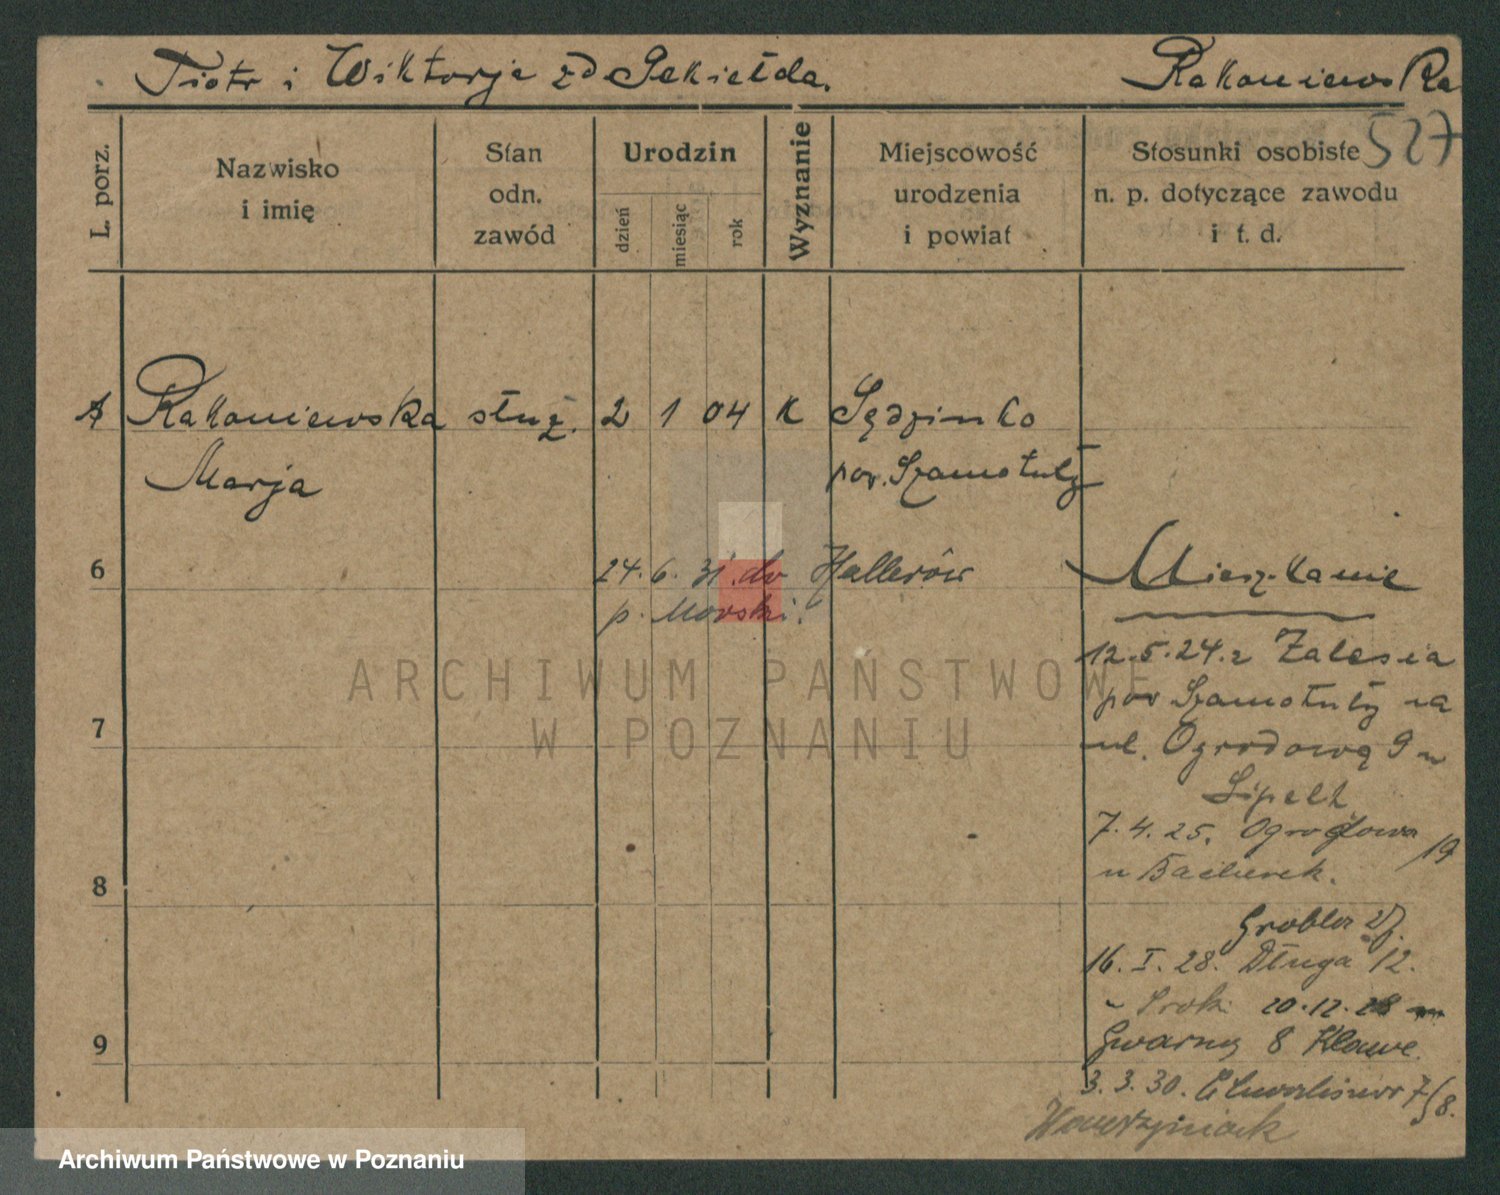 Piotr i Wiktorja zd Pekiełda. Rakoniewska
527
L. porz.
Nazwisko
i imię
Stan
odn.
zawód
Urodzin
dzień
miesiąc
rok
Wyznanie
Miejscowość
urodzenia
i powiat
Stosunki osobiste
n. p. dotyczące zawodu
i t. d.
Rakoniewska służ. 2 1 04 K Sędzinko
Marja pow. Szamotuły
6
24. 6. 31. do Hallerów
p. Morski.
Mieszkanie
12.5.24. z Zalesia
pow Szamotuły na
ul. Ogrodową 9 u
Lipelt
7. 4. 25. Ogrodowa 19
u Bacherek.
Grobla
16. I. 28. Długa 12.
20.12.28
Gwarna 8
3. 3. 30. 7/8.
Wawrzyniack
7
8
9
ARCHIWUM PAŃSTWOWE
W POZNANIU
Archiwum Państwowe w Poznaniu